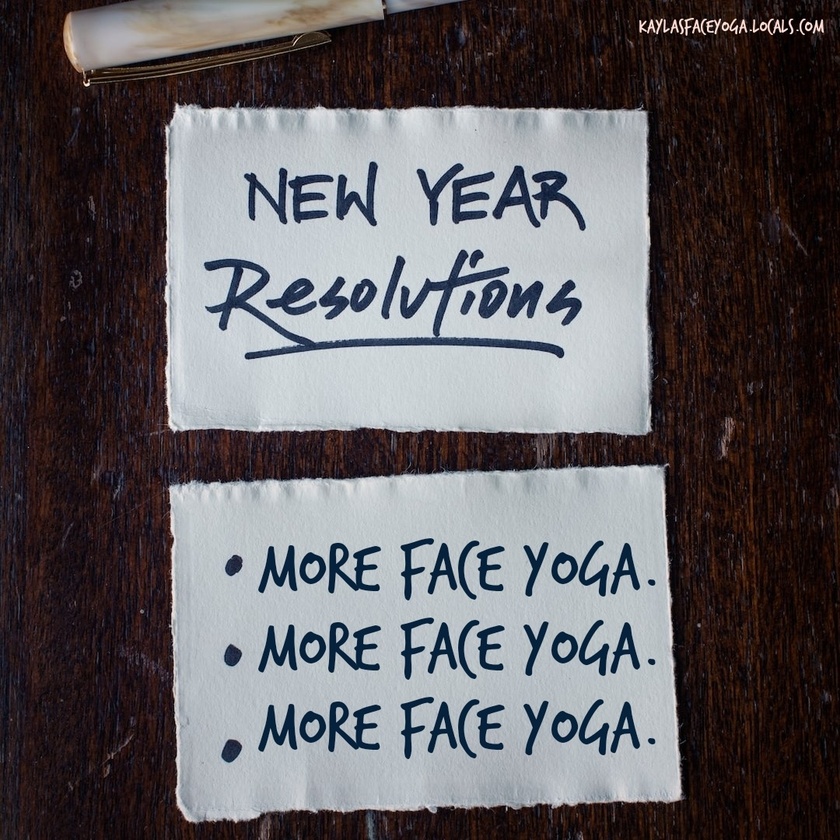 KAYLASFACEYOGA.LOCALS.COM
NEW YEAR
Resolutions
• MORE FACE YOGA.
• MORE FACE YOGA.
• MORE FACE YOGA.